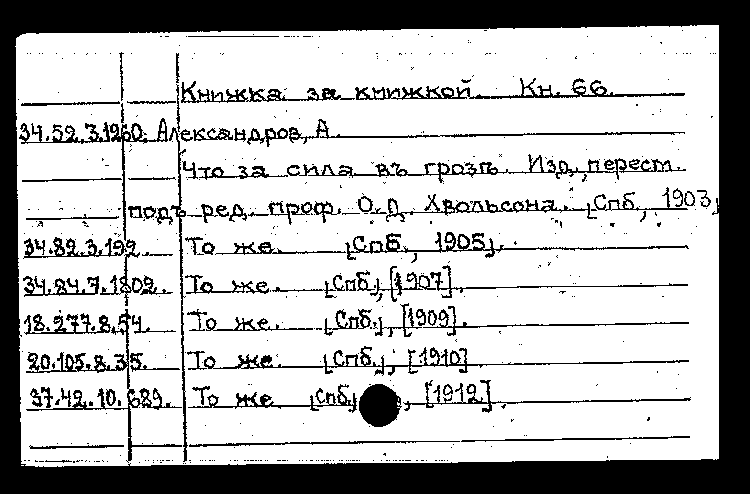 Книжка за книжкой. Кн. 66.
34.52.3.1260. Александров, А.
Что за сила въ грозѣ. Изд., перест.
подъ ред. проф. О. Д. Хвольсона. [Спб., 1903]
34.82.3.192. То же. [Спб., 1905].
34.84.7.1802. То же. [Спб.], [1907].
18.277.8.54. То же. [Спб.], [1909].
20.105.8.35. То же. [Спб.], [1910].
37.42.10.689. То же. [Спб.], [1912].